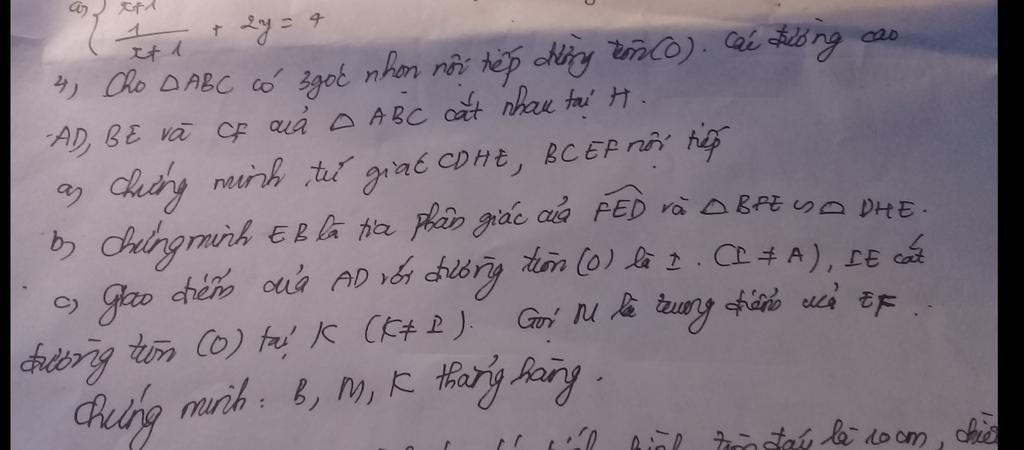 a) { x+1
1/(x+1) + 2y = 4
4, Cho △ABC có 3góc nhọn nội tiếp đường tròn(O). Các đường cao
AD, BE và CF của △ ABC cắt nhau tại H.
a) Chứng minh tứ giác CDHE, BCEF nội tiếp
b) Chứng minh EB là tia phân giác của FED và △ BFE ∽ △ DHE.
c) Giao điểm của AD với đường tròn (O) là I. (I ≠ A), IE cắt
đường tròn (O) tại K (K ≠ I). Gọi M là trung điểm của EF.
Chứng minh: B, M, K thẳng hàng.
tròn đáy là 10cm, chiề